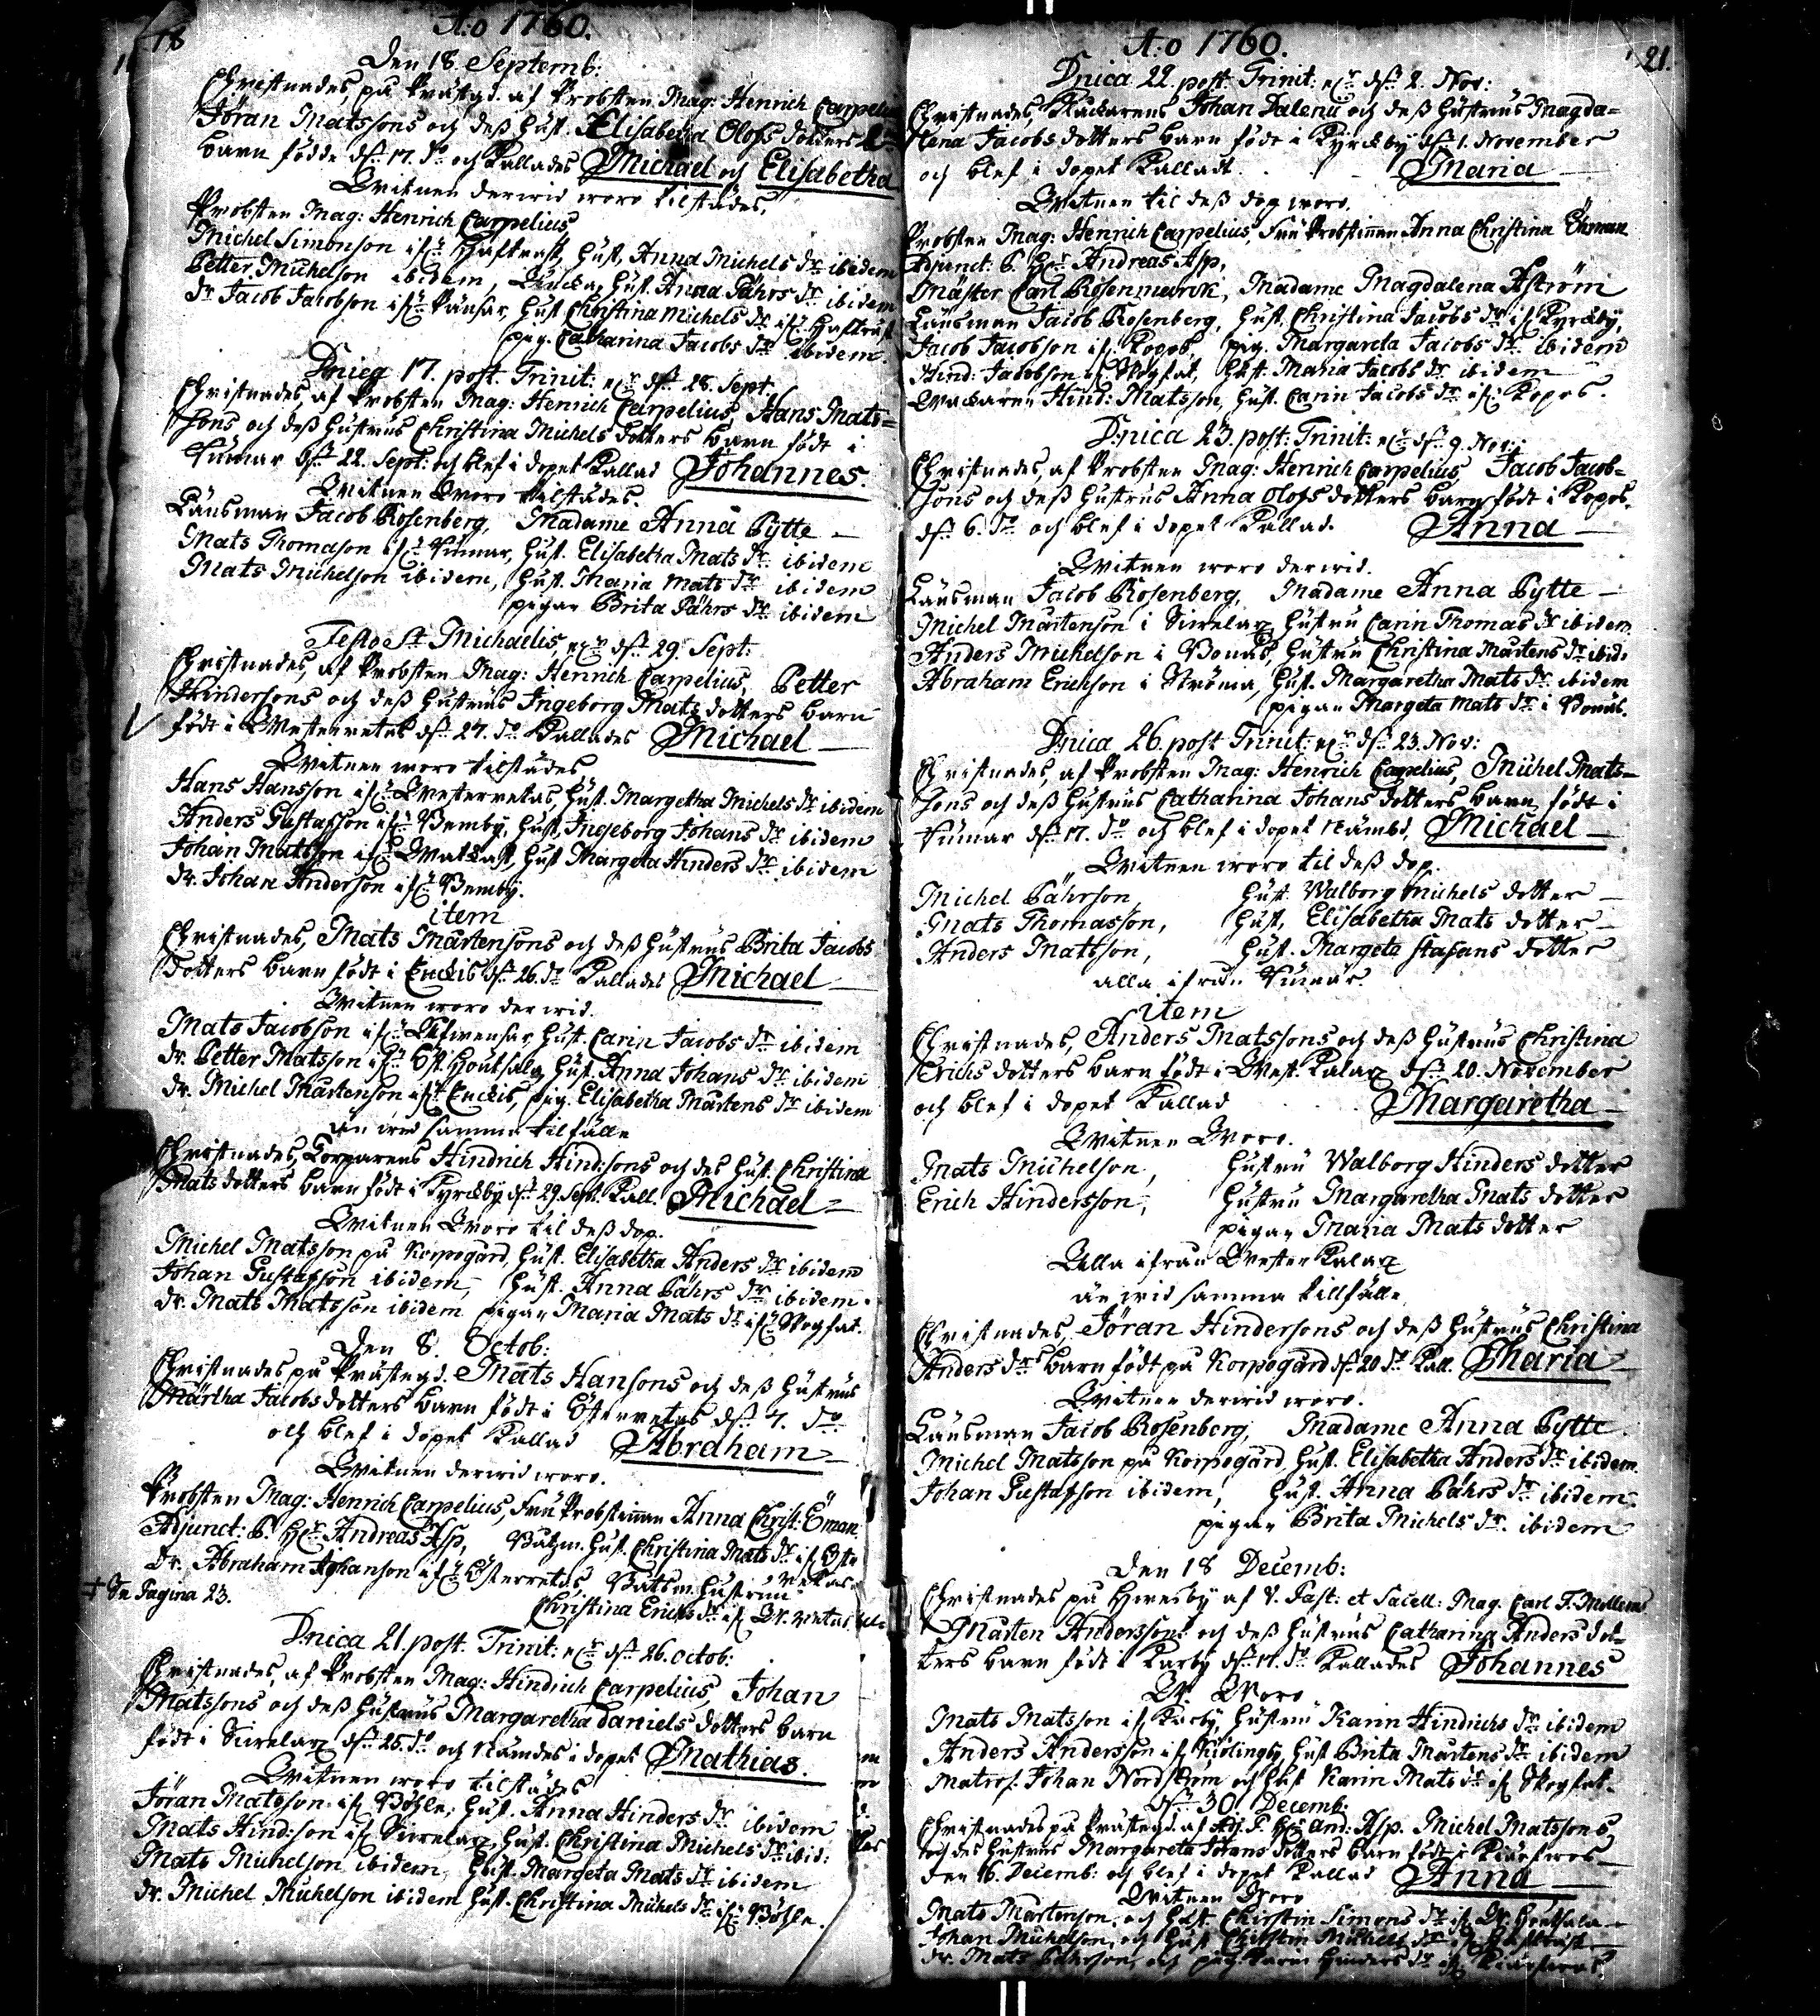 18
A:o 1760.
Den 18. Septemb:
Christnades, på Prästgd. af Probsten Mag: Henrich Carpelius
Jöran Matssons och deß Hust. Elisabetha Olofs dotters
barn födde d. 17. do och Kallades Michael och Elisabetha
Witnen derwid woro tilstädes,
Probsten Mag: Henrich Carpelius
Michel Simonson ifr. Hust. Anna Michels dr ibidem
Petter Michelson ibidem, Hust. Anna Pährs dr ibidem
dr. Jacob Jacobson ifr. Hust. Christina Michels dr ifr.
pig. Catharina Jacobs dr ibidem.
Dnica 17. post. Trinit: d. 28. Sept.
Christnades, af Probsten Mag: Henrich Carpelius, Hans Mats=
sons och deß Hustrus Christina Michels dotters barn födt i
d. 22. Sept: och blef i dopet Kallad Johannes.
Witnen Woro tilstädes.
Länsman Jacob Rosenberg, Madame Anna Pytte —
Mats Thomason ifr. Hust. Elisabetha Mats dr ibidem
Mats Michelson ibidem, Hust. Maria Mats dr ibidem
pigan Brita Pährs dr ibidem
Festo St. Michaelis, d. 29. Sept:
Christnades, af Probsten Mag: Henrich Carpelius, Petter
Hindersons och deß Hustrus Ingeborg Mats dotters barn
födt i Westerretais d. 27. do Kallades Michael —
Witnen woro tilstädes
Hans Hansson ifr. Westerretais, Hust. Margetha Michels dr ibidem
Anders Gustafsson ifr. Hust. Ingeborg Johans dr ibidem
Johan Matsson ifr. Hust. Margeta Hinders dr ibidem
dr. Johan Anderson ifr.
item
Christnades, Mats Mårtensons och deß Hustrus Brita Jacobs
dotters barn födt i Enckis d. 26. do Kallades Michael —
Witnen woro der wid.
Mats Jacobson ifr. Hust. Carin Jacobs dr ibidem
dr. Petter Matsson ifr. Öst. Hust. Anna Johans dr ibidem
dr. Michel Mårtenson ifr. Enckis, pig. Elisabetha Mårtens dr ibidem
än wid samma tilfälle
Christnades, Torparens Hindrich Hind:sons och des Hust. Christina
Mats dotters barn födt i Kyrckby d. 29. Sept. Kall. Michael —
Witnen Woro til deß dop.
Michel Matsson på Korpogård, Hust. Elisabetha Anders dr ibidem
Johan Gustafson ibidem, Hust. Anna Pährs dr ibidem.
dr. Mats Matsson ibidem pigan Maria Mats dr ifr.
Den 8. Octob:
Christnades på Prästegd. Mats Hansons och deß Hustrus
Märtha Jacobs dotters barn födt i Österretais d. 7. do
och blef i dopet Kallad Abraham —
Witnen derwid woro.
Probsten Mag: Henrich Carpelius, Fru Probstinnan Anna Christ: Öman
Adjunct: P. Hr Andreas Asp, Hust. Christina Mats dr
Dr. Abraham Johanson ifr. Österretais Hustrun
Christina Erichs dr ifr.
Se Pagina 23.
Dnica 21. post. Trinit: d. 26. octob:
Christnades, af Probsten Mag: Hindrich Carpelius, Johan
Matssons och deß Hustrus Margaretha Daniels dotters barn
födt i d. 25. do och Nämdes i dopet Mathias.
Witnen woro tilstädes
Jöran Matsson ifr. Hust. Anna Hinders dr ibidem
Mats Hind:son ifr. Hust. Christina Michels dr ibid:
Mats Michelson ibidem, Hust. Margeta Mats dr ibidem
dr. Michel Michelson ibidem Hust. Christina Michels dr ifr.
21.
A:o 1760.
Dnica 22. post. Trinit: d. 2. Nov:
Christnades, Klockarens Johan Dalenii och deß Hustrus Magda=
lena Jacobs dotters barn födt i Kyrckby d. 1. November
och blef i dopet Kalladt Maria —
Witnen til deß dop woro.
Probsten Mag: Henrich Carpelius, Fru Probstinnan Anna Christina Öhman
Adjunct: P. Hr Andreas Asp,
Mäster Carl Rosenmarck, Madame Magdalena Aström
Länsman Jacob Rosenberg, Hust. Christina Jacobs dr ifr. Kyrckby,
Jacob Jacobson ifr. Kopos, pig. Margareta Jacobs dr ibidem
Hind: Jacobson Hust. Maria Jacobs dr ibidem
Hind: Matsson, Hust. Carin Jacobs dr ifr. Kopos.
Dnica 23. post: Trinit: d. 9. Nov:
Christnades, af Probsten Mag: Henrich Carpelius, Jacob Jacob=
sons och deß Hustrus Anna Olofs dotters barn födt i Kopos.
d. 6. do och blef i dopet Kallad. Anna —
Witnen woro derwid.
Länsman Jacob Rosenberg, Madame Anna Pytte —
Michel Mårtenson i Hustru Carin Thomas dr ibidem.
Anders Michelson i Hustru Christina Mårtens dr ibid:
Abraham Erichson i Ströma, Hust. Margaretha Mats dr ibidem
pigan Margeta Mats dr i
Dnica 26. post Trinit: d. 23. Nov:
Christnades, af Probsten Mag: Henrich Carpelius, Michel Mats=
sons och deß Hustrus Catharina Johans dotters barn födt i
d. 17. do och blef i dopet nämbd. Michael —
Witnen woro til deß dop.
Michel Pährson, Hust. Walborg Michels dotter —
Mats Thomasson, Hust. Elisabetha Mats dotter —
Anders Mattson, Hust. Margeta Stafans dotter
alla ifrån
item
Christnades, Anders Matssons och deß Hustrus Christina
Erichs dotters barn födt i West. Kalax d. 20. November
och blef i dopet Kallad Margaretha —
Witnen Woro.
Mats Michelson, Hustru Walborg Hinders dotter
Erich Hindersson, Hustru Margaretha Mats dotter
pigan Maria Mats dotter
Alla ifrån Wester Kalax
än wid samma tillfälle
Christnades, Jöran Hindersons och deß Hustrus Christina
Anders drs barn födt på Korpogård d. 20 do Kall. Maria —
Witnen derwid woro.
Länsman Jacob Rosenberg, Madame Anna Pytte.
Michel Matsson på Korpogård, Hust. Elisabetha Anders dr ibidem.
Johan Gustafson ibidem, Hust. Anna Pährs dr ibidem.
pigan Brita Michels dr. ibidem
Den 18 Decemb:
Christnades på af V. Past: et Sacell: Mag. Carl F.
Mårten Anderssons och deß Hustrus Catharina Anders dot=
ters barn födt i Karby d. 17. do Kallades Johannes
W. Woro
Mats Matsson ifr. Karby, Hustru Karin Hindrichs dr ibidem
Anders Andersson ifr. Hust Brita Mårtens dr ibidem
Matros. Johan Nordström och Hust Karin Mats dr ifr.
d. 30 Decemb:
Christnades på Prästegd. af Adj. P. Hr And: Asp. Michel Matssons
och des Hustrus Margareta Jörans dotters barn födt i
den 16. Decemb: och blef i dopet Kallad Anna —
Witnen Woro
Mats Mårtenson, och Hust. Chirstin Simons dr ifr.
Johan Michelson, och Hust Chirstin Michels dr ifr.
dr. Mats Pährson, och pig. Karin Hinders dr ifr.